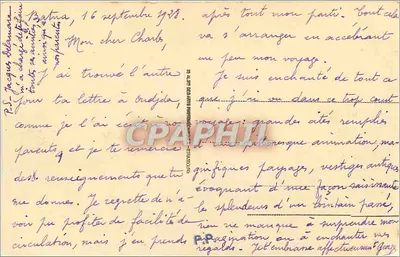 Batna, 16 septembre 1933.
Mon cher Charles,
J'ai trouvé l'autre
jour ta lettre à Oudjda,
comme je l'ai
parents, et je te remercie
des renseignements que tu
me donnes. Je regrette de n'a-
voir pu profiter de facilité de
circulation, mais j'en prends
après tout mon parti. Tout cela
va s'arranger en accélérant
un peu mon voyage.
Je suis enchanté de tout ce
que j'ai vu dans ce trop court
voyage : grandes cités remplies
pittoresque animation, ma-
gnifiques paysages, vestiges antiques
évoquant d'une façon saisissante
les splendeurs d'un lointain passé,
rien ne manque à surprendre mon
imagination ou à enchanter mes
regards. Je t'embrasse affectueusement
P.S. Jacques Delamare
m'a chargé de te faire
toutes ses amitiés
ainsi qu'à
P.P.
CPAPHIL